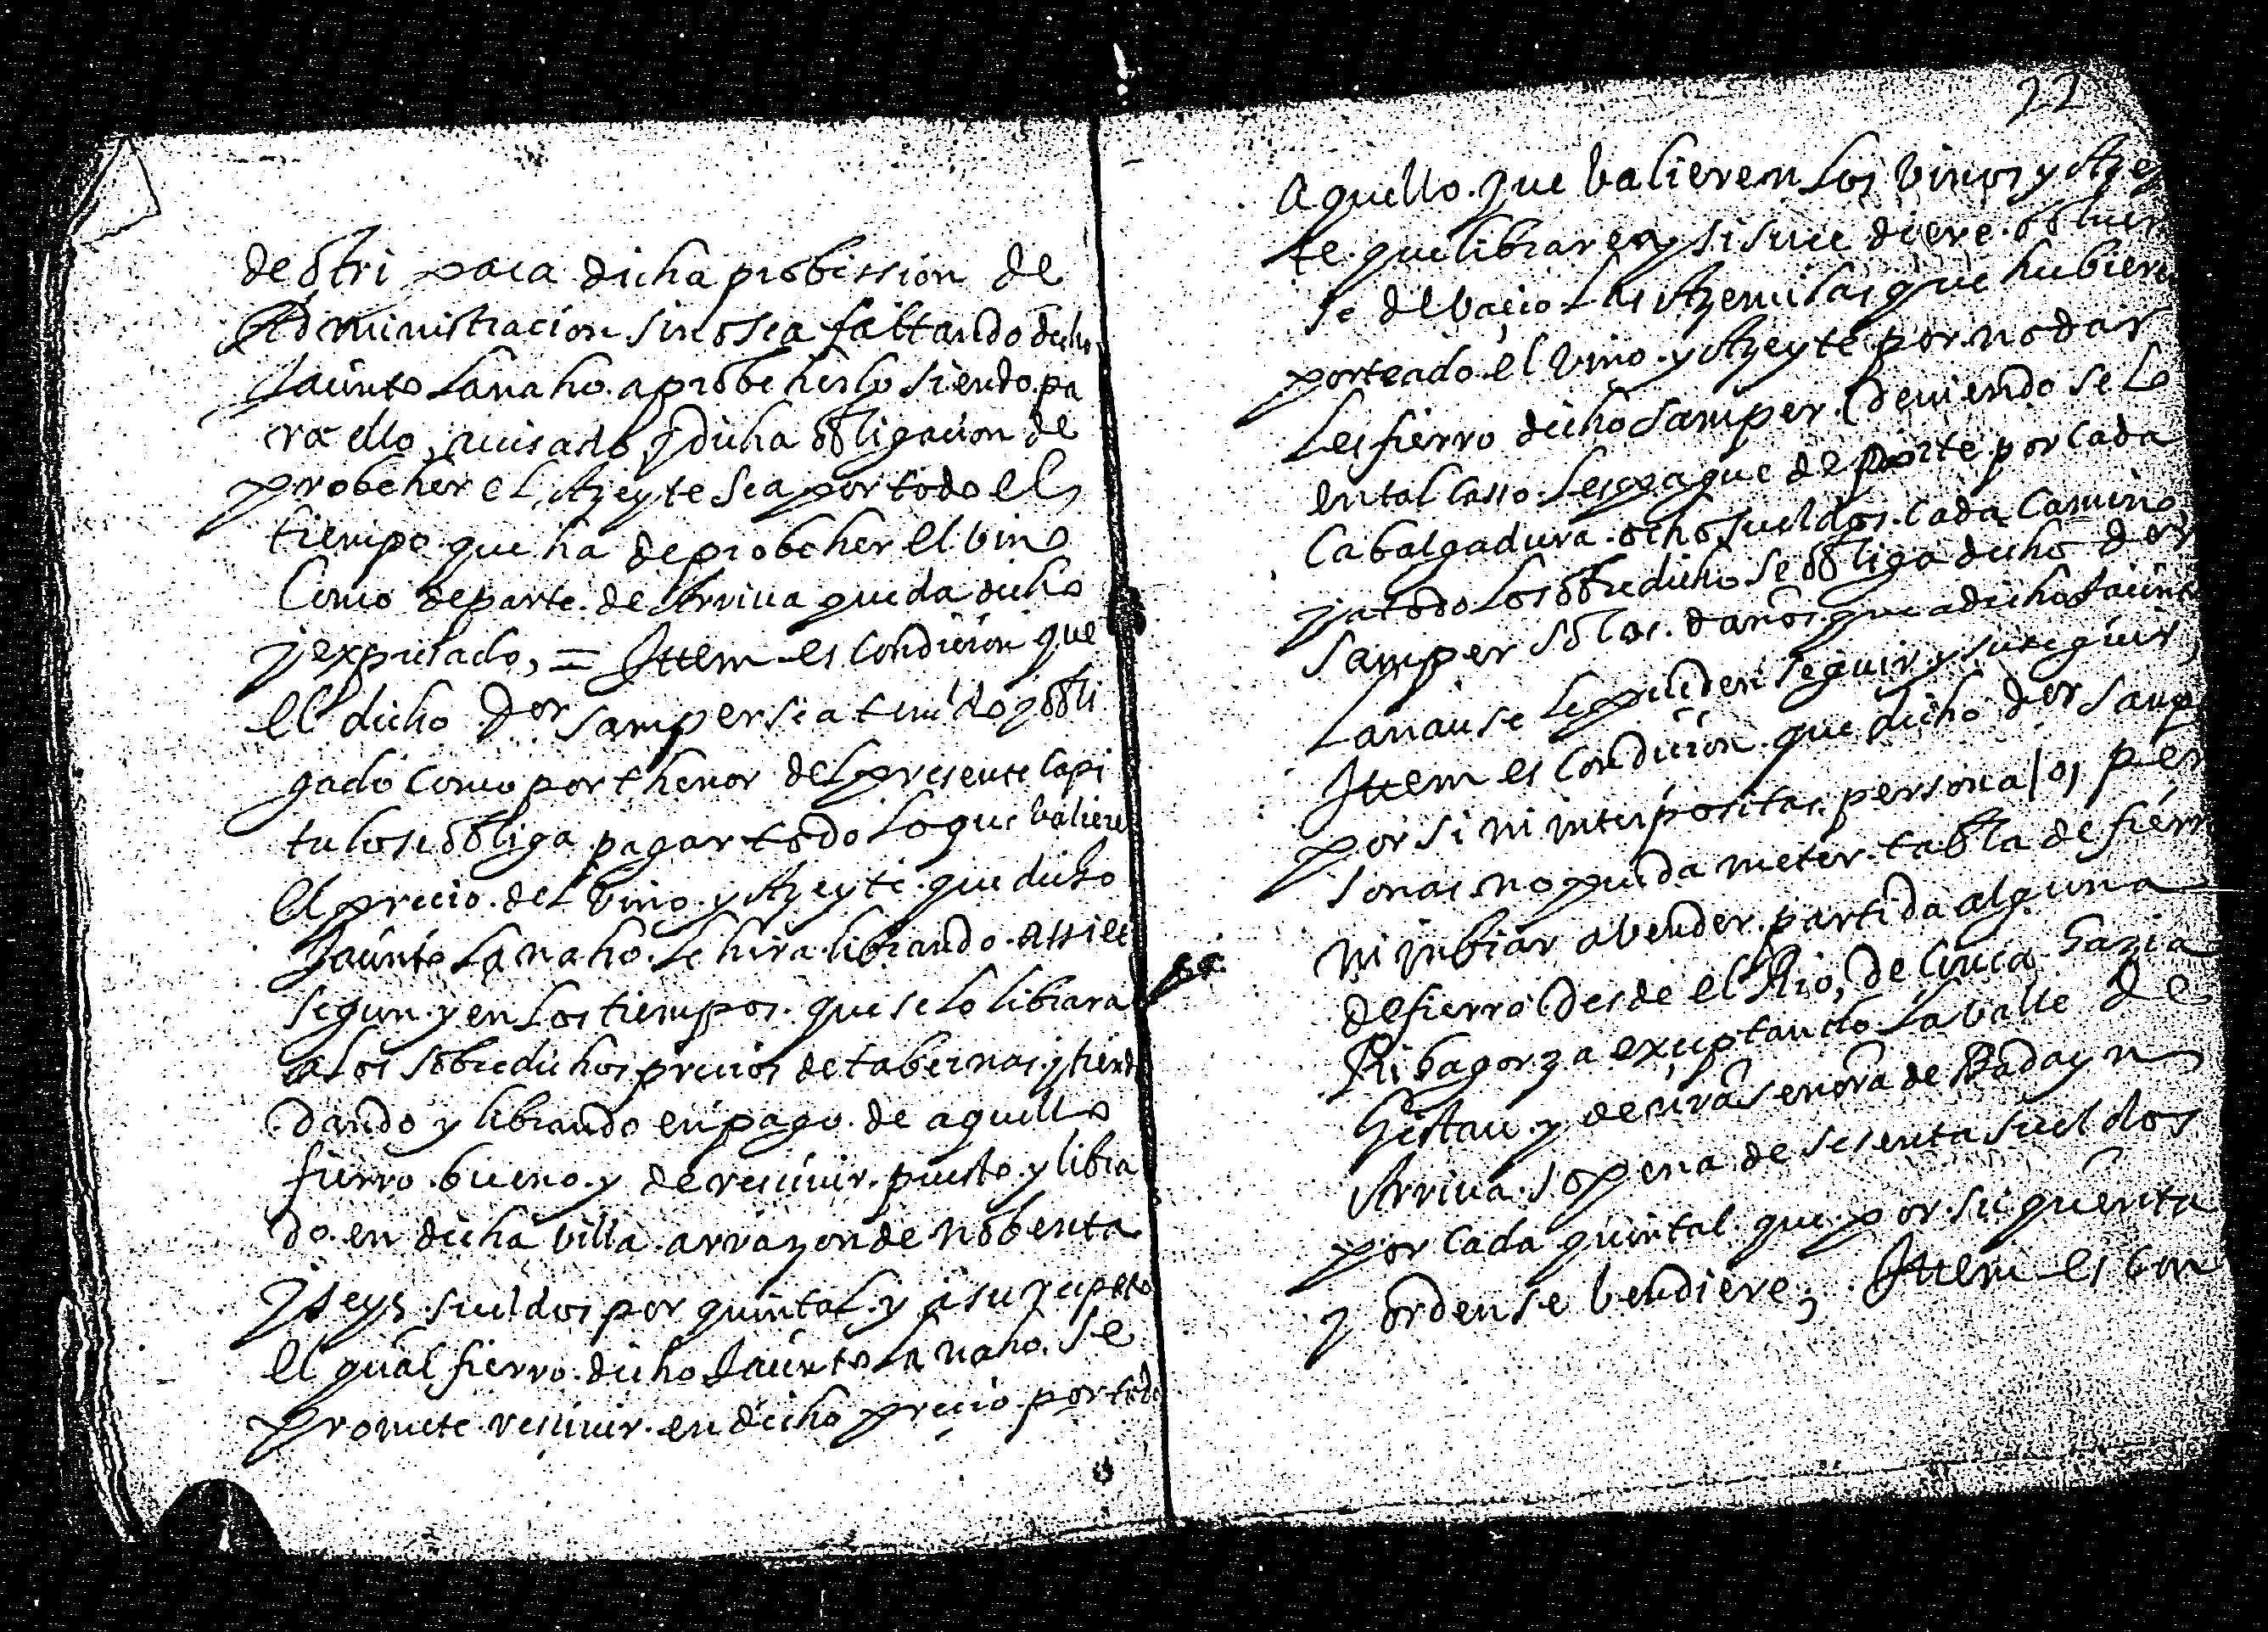 de otri para dicha probission de
Administracion sino sea faltando dicho
Jacinto Lanaho aprobeherlo siendo pa
ra ello avisado y dicha obligacion de
probeher el Azeyte sea por todo el
tiempo que ha de probeher el vino
Como de parte de Arriva queda dicho
y expresado, = Ittem es condicion que
el dicho Dor Samper sea tenido y obli
gado como por thenor del presente capi
tulo se obliga pagar todo lo que baliere
el precio del vino y Azeyte que dicho
Jacinto Lanaho le hira librando assi e
segun y en los tiempos que se lo librara
a los sobredichos precios de tabernas y tiend
dando y librando en pago de aquello
fierro bueno y de recivir puesto y libra
do en dicha villa a rrazon de nobenta
y seys sueldos por quintal y a su respeto
el qual fierro dicho Jacinto Lanaho se
promete recivir en dicho precio por todo
22
aquello que balieren los vinos y Azey
te que librare y si sucediere bolver
se de bacio las Azemilas que hubiere
porteado el vino y Azeyte por no dar
les fierro dicho Samper deviendoselo
en tal casso les pague de porte por cada
cabalgadura ocho sueldos cada camino
y a todo lo sobredicho se obliga dicho Dor
Samper so los daños que a dicho Jacinto
Lanau se le pueden seguir y subseguir,
Ittem es condicion que dicho Dor Samp
por si ni interpositas persona/os per
sonas no pueda meter tabla de fierr
ni inbiar a bender partida alguna
de fierro desde el Rio de Cinca hazia
Ribagorza exceptando la valle de
Gistau y de nra señora de Badayn
Arriva so pena de sesenta sueldos
por cada quintal que por su quenta
y orden se bendiere, Ittem es con